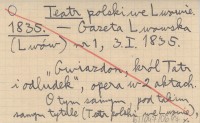 Teatr polski we Lwowie.
1835. — Gazeta Lwowska
(Lwów) nr 1, 3. I. 1835.
„Gwiazdon, król Tata
i odludek", opera w 2 aktach.
O tym samym, pod takim
samym tytłe (Teatr polski we Lwowie),